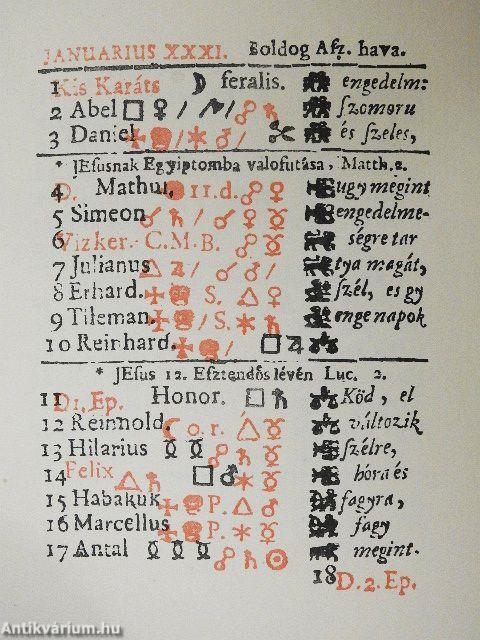 JANUARIUS XXXI. Boldog Aſz. hava.
1 Kis Karáts ☽ feralis. engedelm:
2 Abel □ ♀ / / ☍ ♄ ſzomoru
3 Daniel / ✶ ♂ / és ſzeles,
* JEſusnak Egyiptomba valofutáſa, Matth. 2.
4 D. Mathuſ. 11. d. ☍ ♀ ugy megint
5 Simeon ☌ ♄ / ☌ ♀ ☿ engedelme-
6 Vizker. C. M. B. ☍ ☿ ségre tar
7 Julianus △ ♃ / ☌ ♂ / tya magát,
8 Erhard. S. △ ♀ ſzél, es gy
9 Tileman. / S. ✶ ♄ enge napok
10 Reinhard. / □ ♃
* JEſus 12. Eſztendős lévén Luc. 2.
11 D1. Ep. Honor. □ ♄ Köd, el
12 Reinnold. ☾ o. r. △ ☿ változik
13 Hilarius ☍ ☿ ſzélre,
14 Felix △ ♄ □ ♂ ✶ ☿ hóra és
15 Habakuk P. △ ♂ fagyra,
16 Marcellus P. ✶ ☿ fagy
17 Antal ☍ ♄ ☉ megint.
18 D. 2. Ep.
Antikvárium.hu